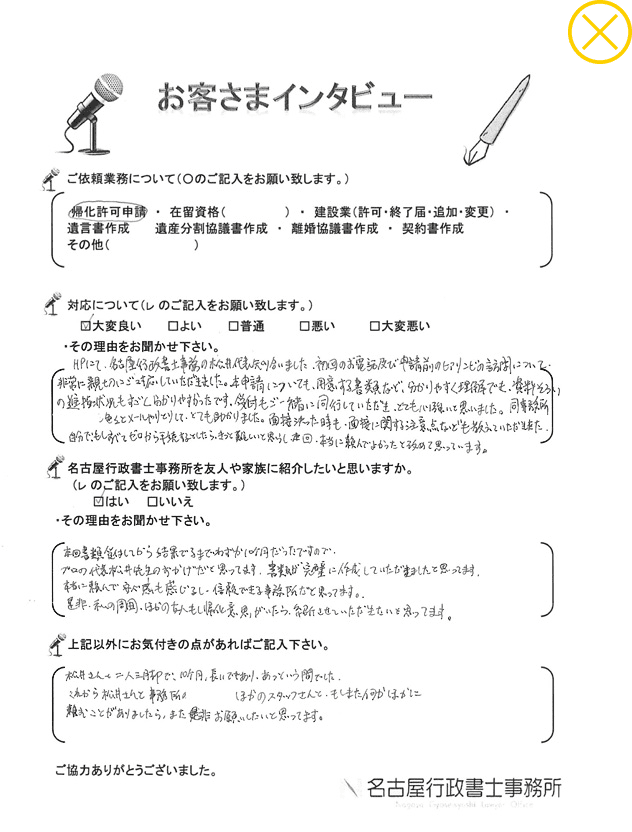 お客さまインタビュー
ご依頼業務について(○のご記入をお願い致します。)
帰化許可申請 ・ 在留資格( ) ・ 建設業(許可・終了届・追加・変更) ・
遺言書作成 遺産分割協議書作成 ・ 離婚協議書作成 ・ 契約書作成
その他( )
対応について(レ のご記入をお願い致します。)
☑大変良い □よい □普通 □悪い □大変悪い
・その理由をお聞かせ下さい。
HPにて、名古屋行政書士事務所の松井代表と知り合いました。初回のお電話及び申請前のヒアリングの訪問について、
非常に親切にご対応していただきました。本申請についても、用意する書類など、分かりやすく理解でき、資料
の進捗状況もすごく分かりやすかったです。受付もご一緒に同行していただき、とても心強いと思いました。同事務所
メールやりとりして、とても助かりました。面接決った時も、面接に関する注意点なども教えていただきました。
自分でもしすべてゼロから手続するとしたら、きっと難しいと思うし、今回、本当に頼んでよかったと改めて思っています。
名古屋行政書士事務所を友人や家族に紹介したいと思いますか。
(レ のご記入をお願い致します。)
☑はい □いいえ
・その理由をお聞かせ下さい。
本回書類受付してから結果でるまでわずか10ケ月だったですので、
プロの代表松井先生のおかげだと思ってます。書類が完璧に作成していただきましたと思ってます。
本当に頼んで安心感も感じるし、信頼できる事務所だと思ってます。
是非、私の周囲、ほかの友人もし帰化意思がいたら、紹介させていただきたいと思ってます。
上記以外にお気付きの点があればご記入下さい。
松井さんと二人三脚で、10ケ月、長いでもあり、あっという間でした。
これから松井さんと事務所の ほかのスタッフさんと、もしまた何かほかに
頼むことがありましたら、また是非お願いしたいと思ってます。
ご協力ありがとうございました。
名古屋行政書士事務所